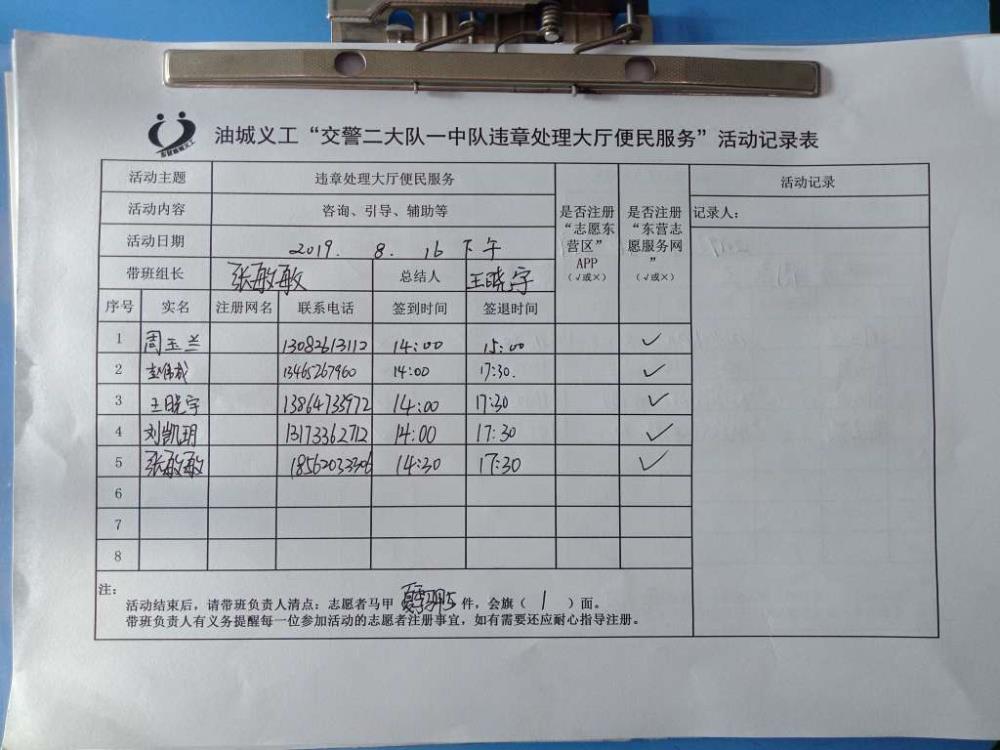 油城义工“交警二大队一中队违章处理大厅便民服务”活动记录表
活动主题 违章处理大厅便民服务 活动记录
活动内容 咨询、引导、辅助等 是否注册“志愿东营区”APP（√或×） 是否注册“东营志愿服务网”（√或×） 记录人：
活动日期 2019. 8. 16 下午
带班组长 张敏敏 总结人 王晓宇
序号 实名 注册网名 联系电话 签到时间 签退时间
1 周玉兰 13082613112 14:00 15:00 ✓
2 13465267960 14:00 17:30. ✓
3 王晓宇 13864733972 14:00 17:30 ✓
4 刘凯玥 13173362712 14:00 17:30 ✓
5 张敏敏 18562033306 14:30 17:30 ✓
6
7
8
注：
活动结束后，请带班负责人清点：志愿者马甲 5 件，会旗（ 1 ）面。
带班负责人有义务提醒每一位参加活动的志愿者注册事宜，如有需要还应耐心指导注册。